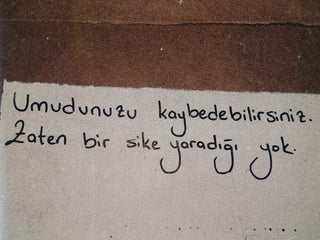 Umudunuzu kaybedebilirsiniz.
Zaten bir sike yaradığı yok.